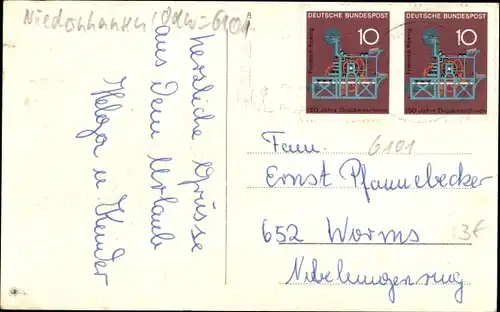 Niedernhausen/Odw=6101
herzliche Grüsse
aus dem Urlaub
Helga u Kinder
DEUTSCHE BUNDESPOST
10
Friedrich Koenig
150 Jahre Druckmaschinen
DEUTSCHE BUNDESPOST
10
Friedrich Koenig
150 Jahre Druckmaschinen
Fam. 6101
Ernst Pfannebecker
652 Worms
3€
Nibelungenring